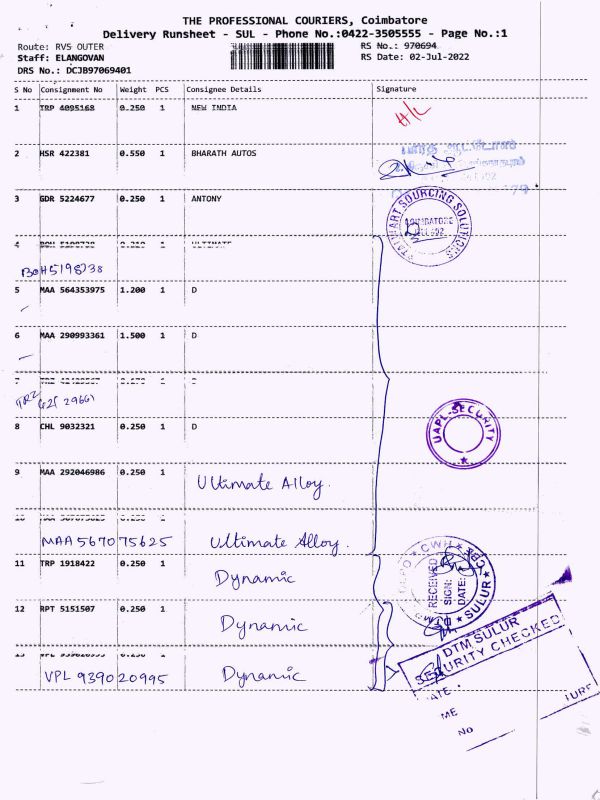 THE PROFESSIONAL COURIERS, Coimbatore
Delivery Runsheet - SUL - Phone No.:0422-3505555 - Page No.:1
Route: RVS OUTER RS No.: 970694
Staff: ELANGOVAN RS Date: 02-Jul-2022
DRS No.: DCJB97069401
S No Consignment No Weight PCS Consignee Details Signature
1 TRP 4095168 0.250 1 NEW INDIA
H/L
2 HSR 422381 0.550 1 BHARATH AUTOS
3 GDR 5224677 0.250 1 ANTONY
STALWART SOURCING SOLUTIONS
COIMBATORE
4 BOH 5198738 0.210 1 ULTIMATE
BOH 5198738
5 MAA 564353975 1.200 1 D
6 MAA 290993361 1.500 1 D
7
TRZ
8 CHL 9032321 0.250 1 D
UAPL-SECURITY
9 MAA 292046986 0.250 1 Ultimate Alloy.
10
MAA 567075625 Ultimate Alloy.
11 TRP 1918422 0.250 1 Dynamic
CWH
RECEIVED
SIGN:
DATE:
SULUR
12 RPT 5151507 0.250 1 Dynamic
13
VPL 939020995 Dynamic
DTM SULUR
SECURITY CHECKED
ATE
ME
NO
TURE